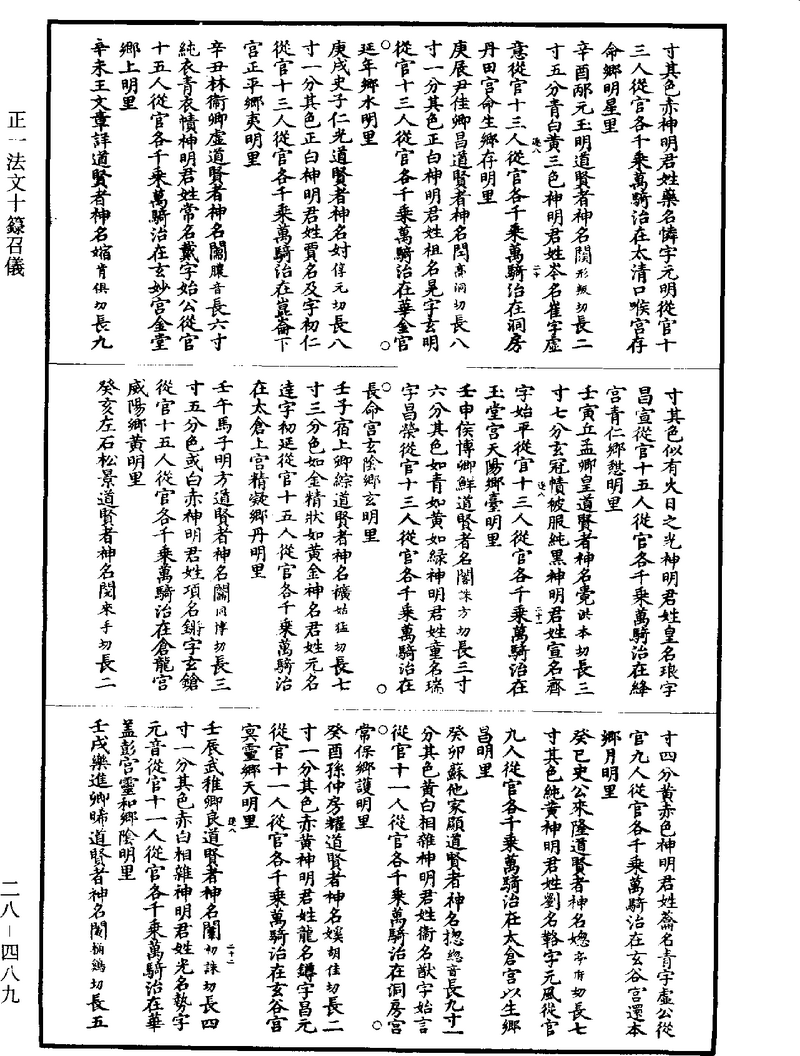 寸其色赤神明君姓樂名憐字元明從官十
三人從官各千乘萬騎治在太清口喉宮存
命鄉明星里
辛酉邴元玉明道賢者神名閿形飯切長二
寸五分青白黃三色神明君姓岑名崔字虛
意從官十三人從官各千乘萬騎治在洞房
丹田宮命生鄉存明里
庚辰尹佳卿昌道賢者神名閔亭洞切長八
寸一分其色正白神明君姓祖名晃字玄明
從官十三人從官各千乘萬騎治在華金官
延年鄉水明里
庚戌史子仁光道賢者神名㝊俘元切長八
寸一分其色正白神明君姓賈名及字初仁
從官十三人從官各千乘萬騎治在崑崙下
宮正平鄉夷明里
辛丑林衛卿虛道賢者神名闣膿音長六寸
純衣青衣幘神明君姓常名戴字始公從官
十五人從官各千乘萬騎治在玄妙宮金堂
鄉上明里
辛未王文章詳道賢者神名㛱肯俱切長九
寸其色似有火日之光神明君姓皇名琅字
昌宣從官十五人從官各千乘萬騎治在絳
宮青仁鄉慙明里
壬寅丘孟卿皇道賢者神名㝁洪本切長三
寸七分玄冠幘被服純黑神明君姓宣名齊
字始平從官十三人從官各千乘萬騎治在
玉堂宮天陽鄉臺明里
壬申侯博卿鮮道賢者名闇誅方切長三寸
六分其色如青如黃如綠神明君姓童名瑞
字昌榮從官十三人從官各千乘萬騎治在
長命宮玄陰鄉玄明里
壬子宿上卿綜道賢者神名㰈姑猛切長七
寸三分色如金精狀如黃金神名君姓元名
達字初延從官十五人從官各千乘萬騎治
在太倉上宮精凝鄉丹明里
壬午馬子明方道賢者神名闣同博切長三
寸五分色或白赤神明君姓項名鏘字玄鎗
從官十五人從官各千乘萬騎治在倉龍宮
威陽鄉黃明里
癸亥左石松景道賢者神名閔來手切長二
寸四分黃赤色神明君姓齋名青字虛公從
官九人從官各千乘萬騎治在玄谷宮還本
鄉月明里
癸巳史公來隆道賢者神名㛐亭府切長七
寸其色純黃神明君姓劉名輅字元風從官
九人從官各千乘萬騎治在太倉宮以生鄉
昌明里
癸卯蘇他家顧道賢者神名揔總音長九寸一
分其色黃白相雜神明君姓衞名猷字始言
從官十一人從官各千乘萬騎治在洞房宮
常保鄉護明里
癸酉孫仲房耀道賢者神名嫨胡佳切長二
寸一分其色赤黃神明君姓龍名鐏字昌元
從官十一人從官各千乘萬騎治在玄谷宮
冥靈鄉天明里
壬辰武稚卿良道賢者神名闍切誅切長四
寸一分其色赤白相雜神明君姓光名勢字
元音從官十一人從官各千乘萬騎治在華
盖彭宮靈和鄉陰明里
壬戌樂進卿晞道賢者神名閿柄鵶切長五
正一法文十籙召儀
二八－四八九